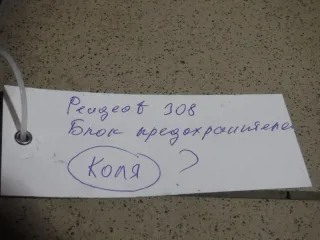 Peugeot 308
Блок предохранителей
Коля ?